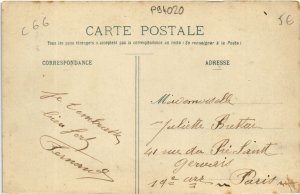 C66
PB4020
5€
CARTE POSTALE
Tous les pays étrangers n'acceptent pas la correspondance au recto (Se renseigner à la Poste)
CORRESPONDANCE
ADRESSE
Je t'embrasse
bien fort
Fernand
Mademoiselle
Juliette Breton
41 rue du Pré Saint
Gervais
19e arr Paris